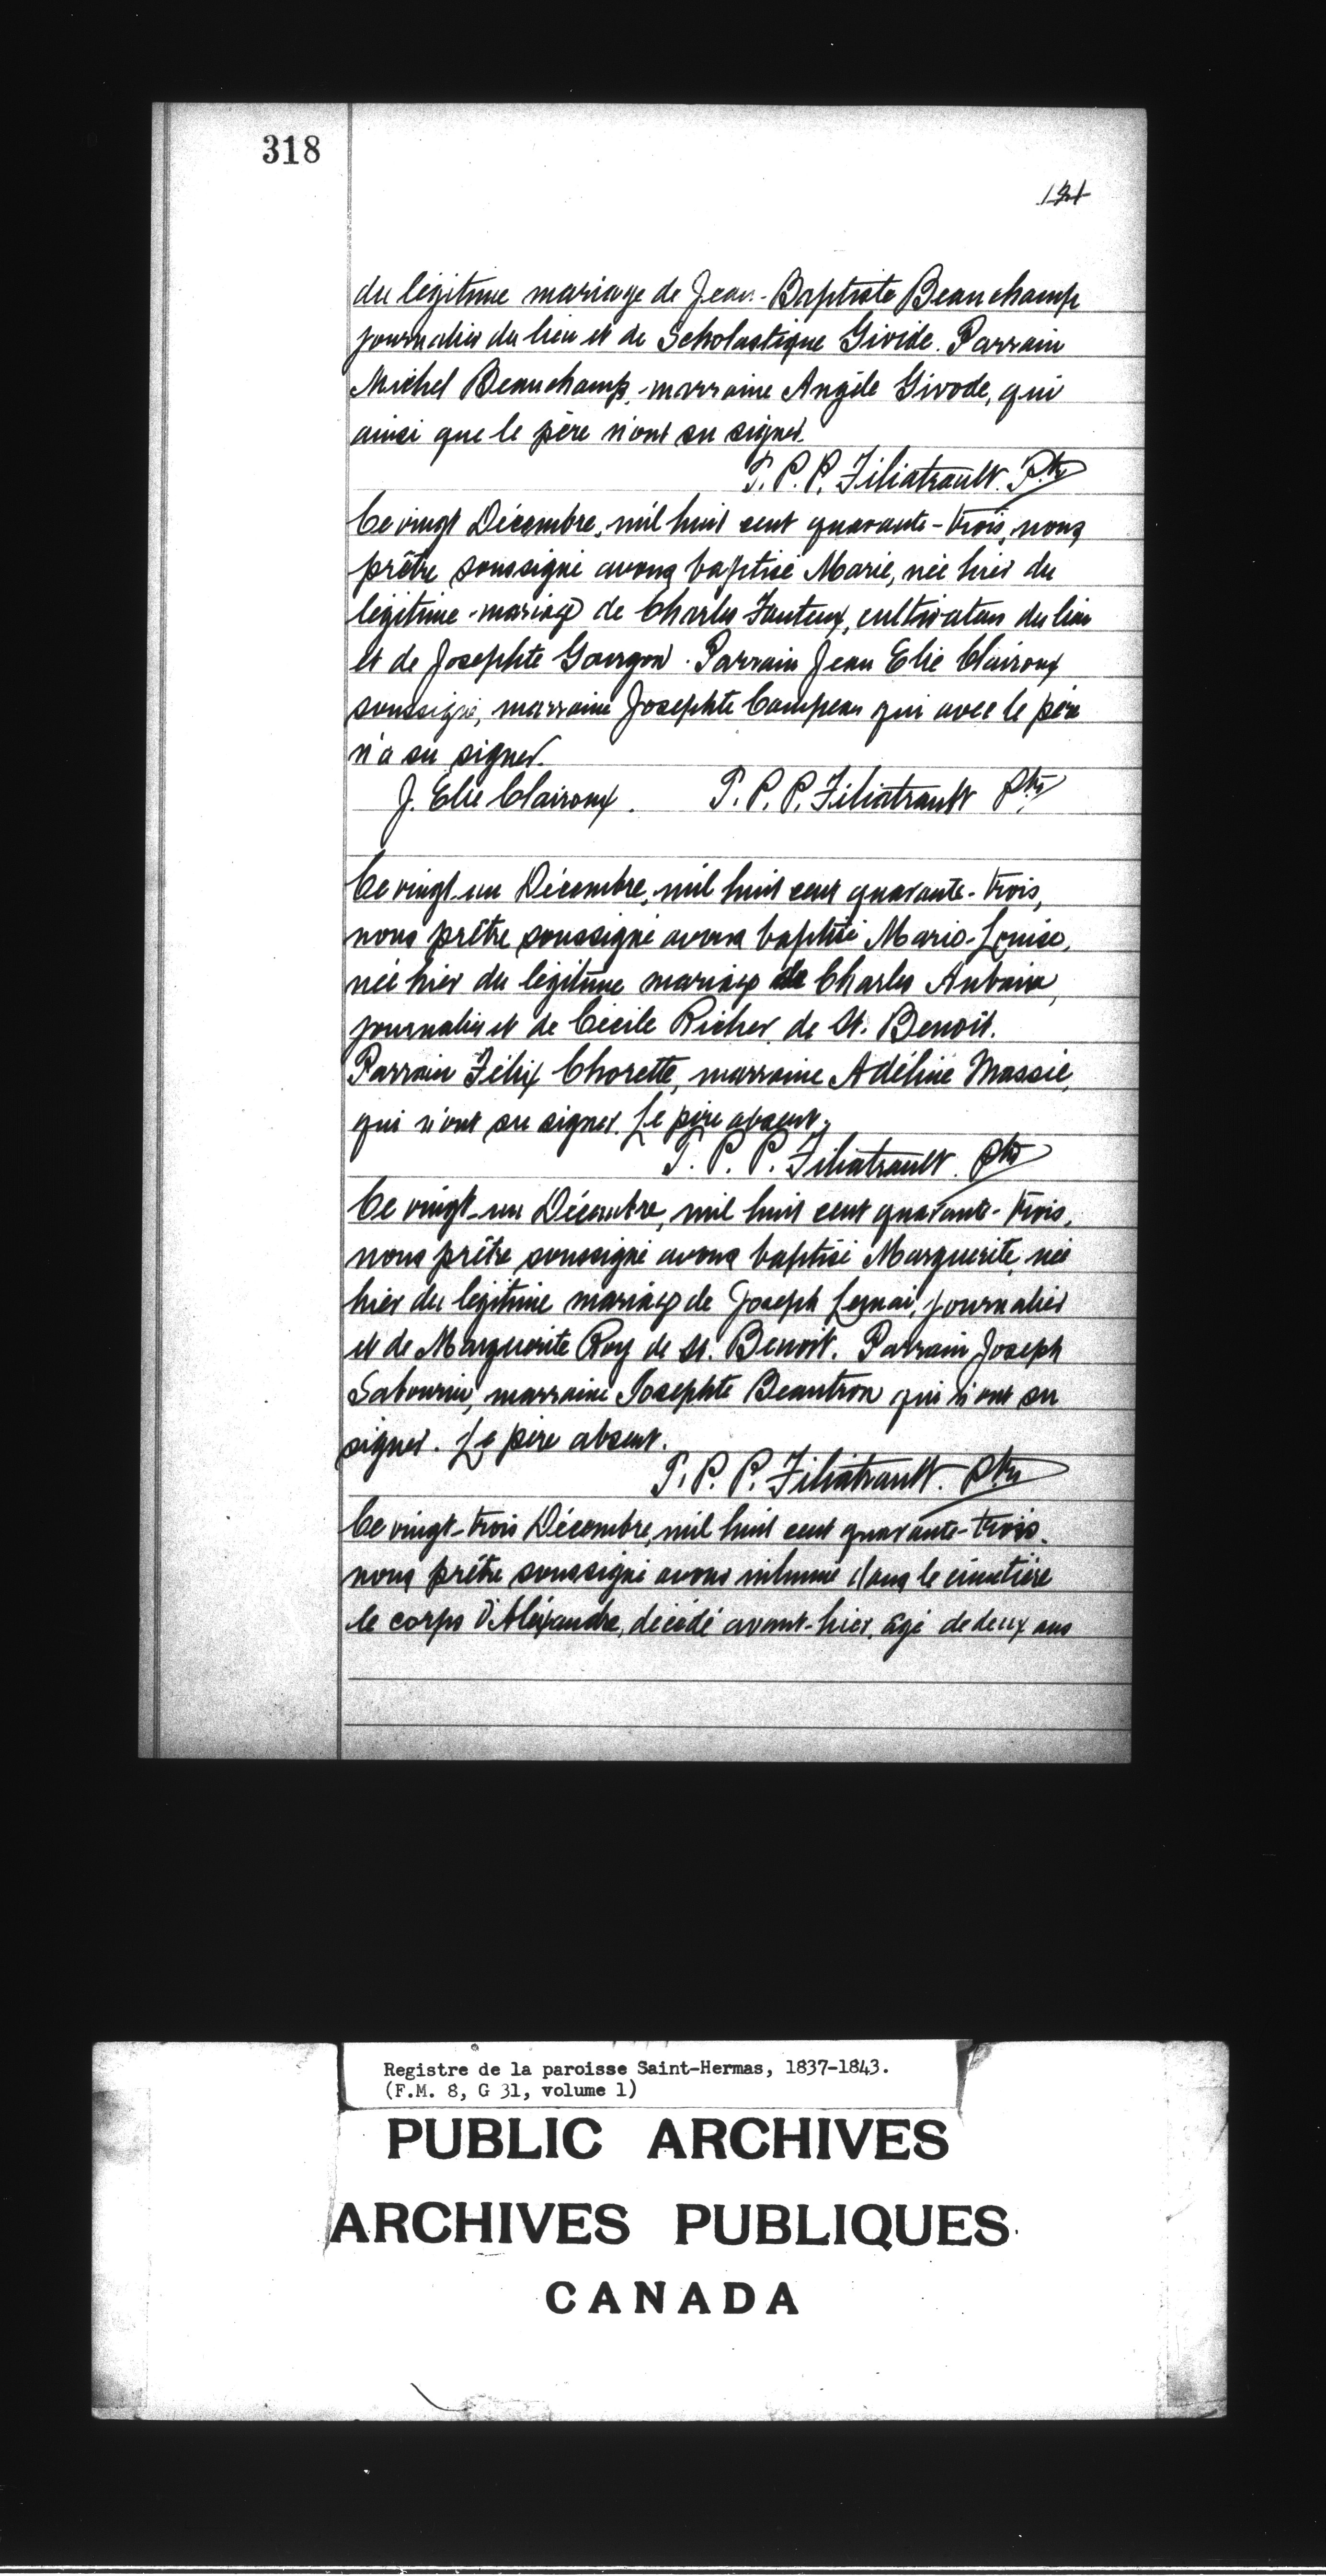 318
du légitime mariage de Jean-Baptiste Beauchamp
journalier du lieu et de Scholastique Givide. Parrain
Michel Beauchamp, marraine Angèle Givode, qui
ainsi que le père n'ont su signer.
T. P. P. Filiatrault. Ptre
Ce vingt Décembre, mil huit cent quarante-trois, nous
prêtre soussigné avons baptisé Marie, née hier du
légitime mariage de Charles Fauteux, cultivateur du lieu
et de Josephte Gourgon. Parrain Jean Elie Clairoux
soussigné, marraine Josephte Campeau qui avec le père
n'a su signer.
J. Elie Clairoux. T. P. P. Filiatrault Ptre
Ce vingt un Décembre, mil huit cent quarante-trois,
nous prêtre soussigné avons baptisé Marie-Louise,
née hier du légitime mariage de Charles Aubain,
journalier et de Cécile Richer de St. Benoit.
Parrain Félix Chorette, marraine Adéline Massie,
qui n'ont su signer. Le père absent.
T. P. P. Filiatrault. Ptre
Ce vingt-un Décembre, mil huit cent quarante-trois,
nous prêtre soussigné avons baptisé Marguerite, née
hier du légitime mariage de Joseph Lemai, journalier
et de Marguerite Roy de St. Benoit. Parrain Joseph
Sabourin, marraine Josephte Beautron qui n'ont su
signer. Le père absent.
T. P. P. Filiatrault. Ptre
Ce vingt-trois Décembre, mil huit cent quarante-trois,
nous prêtre soussigné avons inhumé dans le cimetière
le corps d'Alexandre, décédé avant-hier, âgé de deux ans
Registre de la paroisse Saint-Hermas, 1837-1843.
(F.M. 8, G 31, volume 1)
PUBLIC ARCHIVES
ARCHIVES PUBLIQUES
CANADA